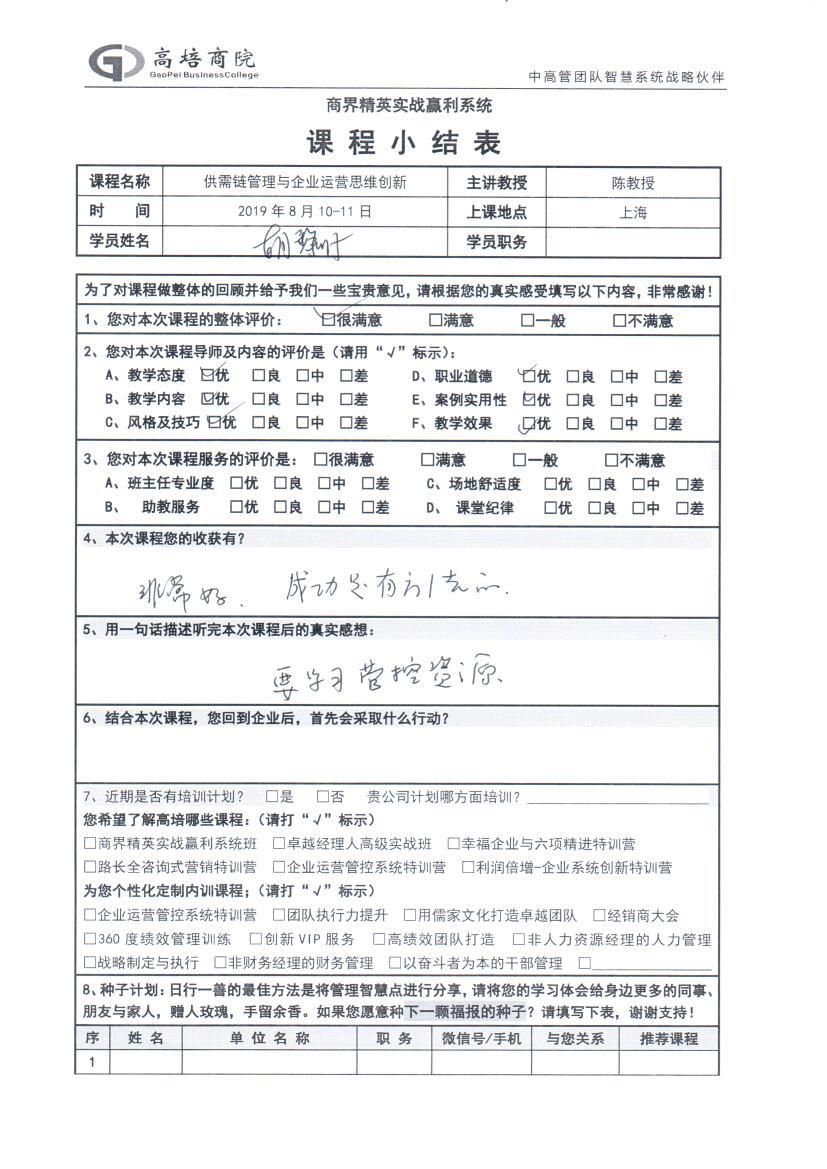 高培商院
GaoPei BusinessCollege
中高管团队智慧系统战略伙伴
商界精英实战赢利系统
课程小结表
课程名称 供需链管理与企业运营思维创新 主讲教授 陈教授
时 间 2019年8月10-11日 上课地点 上海
学员姓名 胡 学员职务
为了对课程做整体的回顾并给予我们一些宝贵意见，请根据您的真实感受填写以下内容，非常感谢！
1、您对本次课程的整体评价： ☑很满意 □满意 □一般 □不满意
2、您对本次课程导师及内容的评价是（请用“√”标示）：
A、教学态度 ☑优 □良 □中 □差 D、职业道德 ☑优 □良 □中 □差
B、教学内容 ☑优 □良 □中 □差 E、案例实用性 ☑优 □良 □中 □差
C、风格及技巧 ☑优 □良 □中 □差 F、教学效果 ☑优 □良 □中 □差
3、您对本次课程服务的评价是： □很满意 □满意 □一般 □不满意
A、班主任专业度 □优 □良 □中 □差 C、场地舒适度 □优 □良 □中 □差
B、 助教服务 □优 □良 □中 □差 D、 课堂纪律 □优 □良 □中 □差
4、本次课程您的收获有？
非常好． 成功总有方法的．
5、用一句话描述听完本次课程后的真实感想：
要学习管控资源
6、结合本次课程，您回到企业后，首先会采取什么行动？
7、近期是否有培训计划？ □是 □否 贵公司计划哪方面培训？
您希望了解高培哪些课程：（请打“√”标示）
□商界精英实战赢利系统班 □卓越经理人高级实战班 □幸福企业与六项精进特训营
□路长全咨询式营销特训营 □企业运营管控系统特训营 □利润倍增-企业系统创新特训营
为您个性化定制内训课程；（请打“√”标示）
□企业运营管控系统特训营 □团队执行力提升 □用儒家文化打造卓越团队 □经销商大会
□360度绩效管理训练 □创新VIP服务 □高绩效团队打造 □非人力资源经理的人力管理
□战略制定与执行 □非财务经理的财务管理 □以奋斗者为本的干部管理 □
8、种子计划：日行一善的最佳方法是将管理智慧点进行分享，请将您的学习体会给身边更多的同事、
朋友与家人，赠人玫瑰，手留余香。如果您愿意种下一颗福报的种子？请填写下表，谢谢支持！
序 姓名 单位名称 职务 微信号/手机 与您关系 推荐课程
1